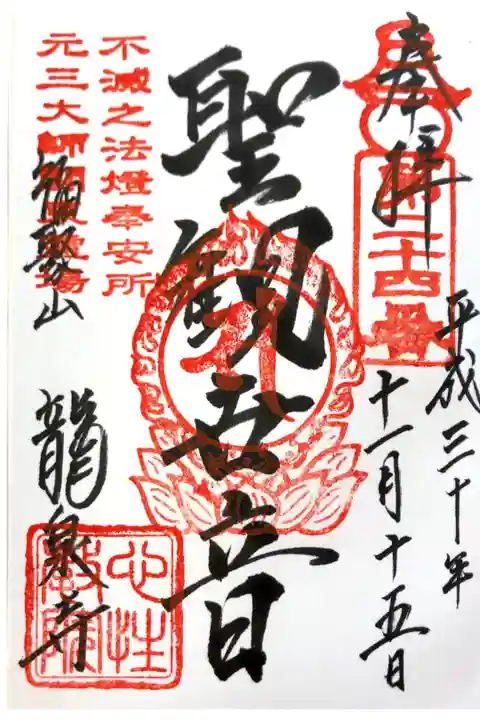 奉拝
第二十四番
平成三十年
十一月十五日
聖観世音
不滅之法燈奉安所
元三大師
龍泉寺
心性